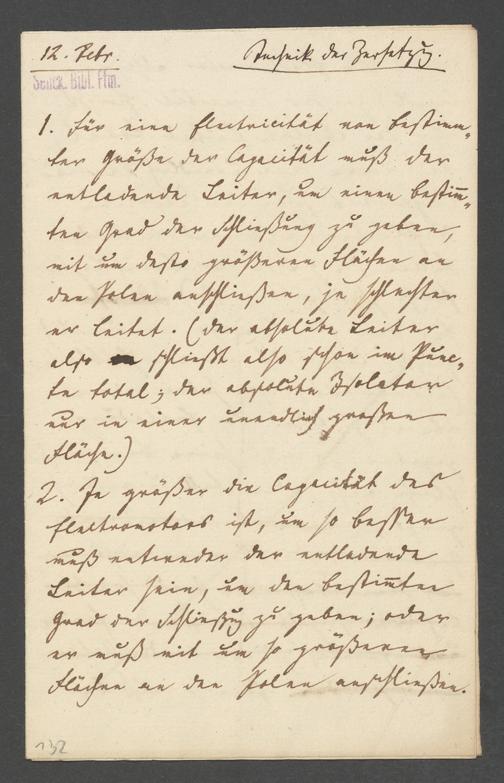 12. Febr. Technik der Zersetzung.
Senck. Bibl. Ffm.
1. Für eine Electricität von bestimm-
ter Größe der Capacität muß der
entladende Leiter, um einen bestim̅-
ten Grad der Schließung zu geben,
mit um desto größeren Flächen an
den Polen anschließen, je schlechter
er leitet. (Der absolute Leiter
also schließt also schon im Punc-
te total; der absolute Isolator
nur in einer unendlich großen
Fläche.)
2. Je größer die Capacität des
Electromotors ist, um so besser
muß entweder der entladende
Leiter sein, um den bestim̅ten
Grad der Schließung zu geben; oder
er muß mit um so größeren
Flächen an den Polen anschließen.
132